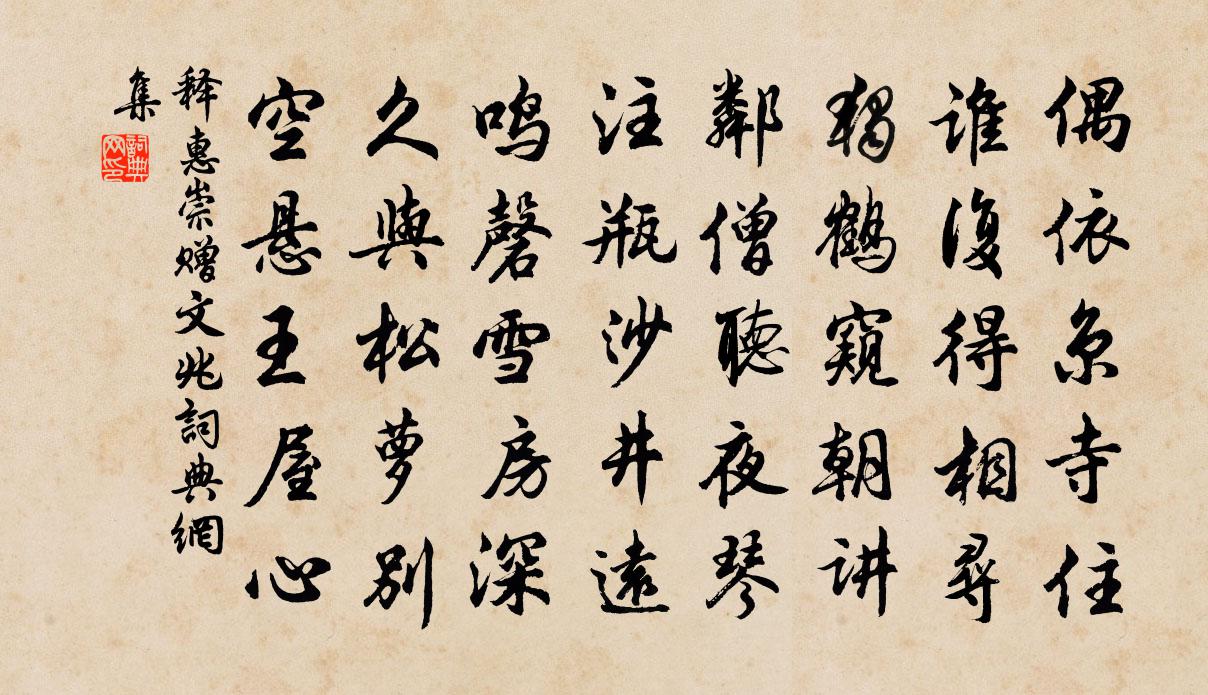 偶依京寺住
誰復得相尋
獨鶴窺朝讲
鄰僧聽夜琴
注瓶沙井遠
鸣磬雪房深
久與松萝别
空悬王屋心
释惠崇赠文兆詞典網
集
詞典网印